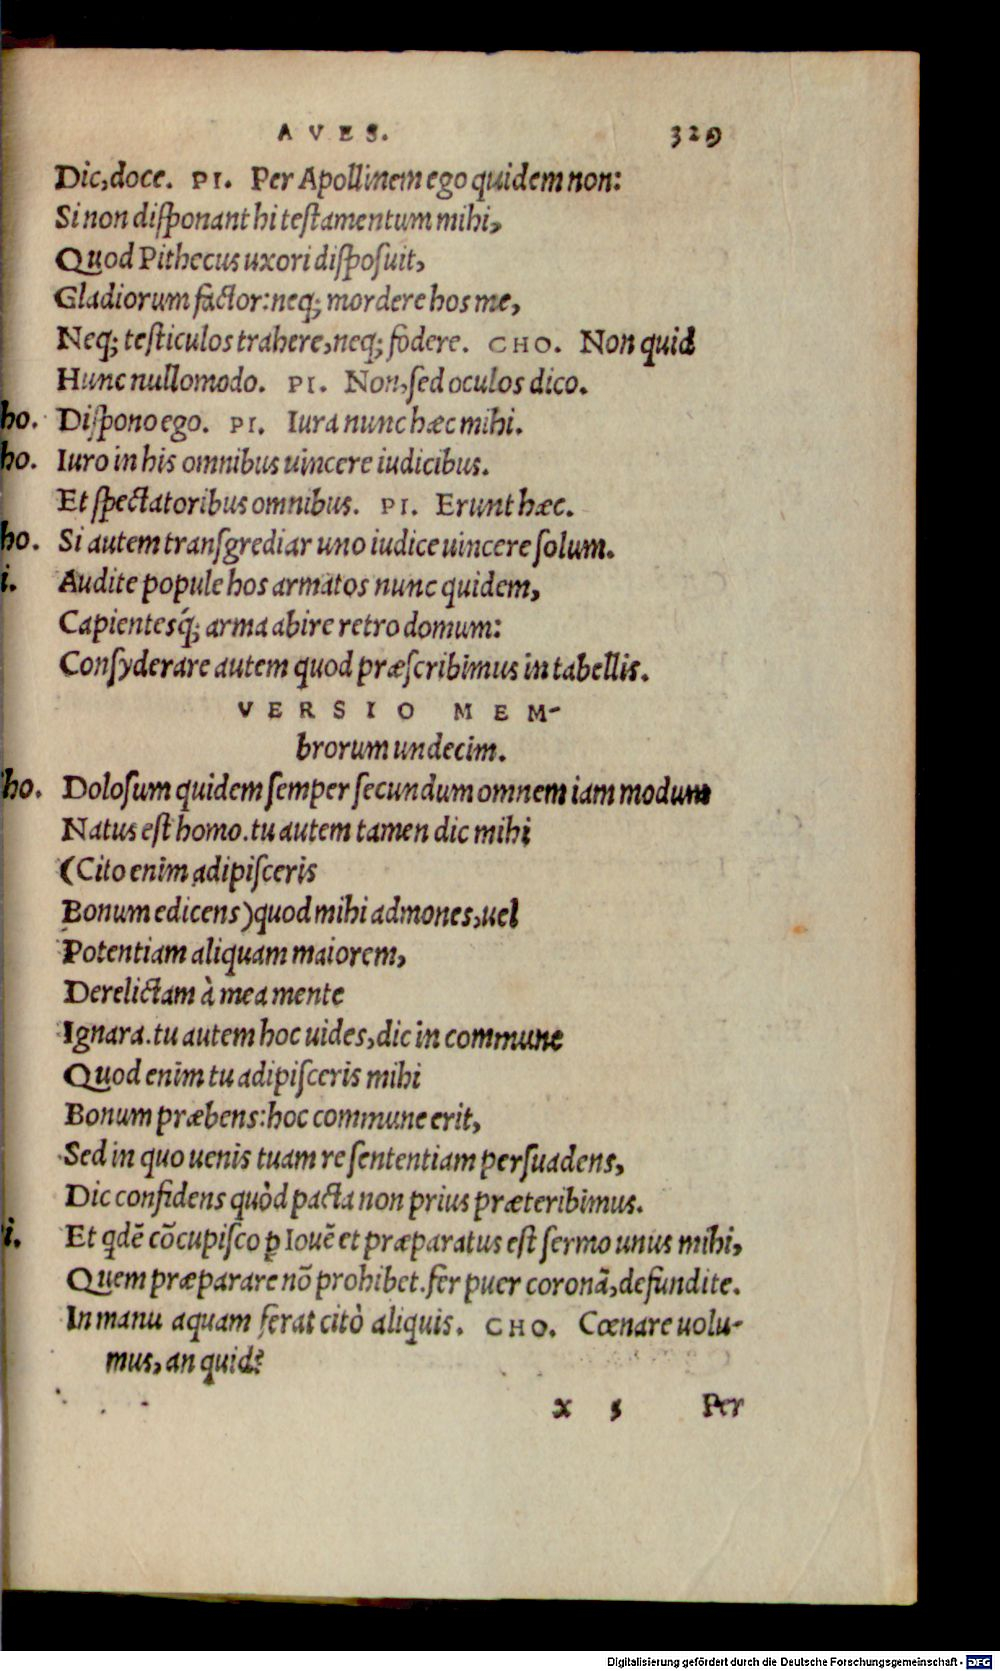 AVES. 329
Dic,doce. PI. Per Apollinem ego quidem non:
Si non diſponant hi teſtamentum mihi,
Quod Pithecus uxori diſpoſuit,
Gladiorum factor:neq; mordere hos me,
Neq; teſticulos trahere,neq; fodere. CHO. Non quid
Hunc nullomodo. PI. Non,ſed oculos dico.
ho. Diſpono ego. PI. Iura nunc hæc mihi.
ho. Iuro in his omnibus uincere iudicibus.
Et ſpectatoribus omnibus. PI. Erunt hæc.
ho. Si autem tranſgrediar uno iudice uincere ſolum.
i. Audite popule hos armatos nunc quidem,
Capientesq́; arma abire retro domum:
Conſyderare autem quod præſcribimus in tabellis.
VERSIO MEM-
brorum undecim.
ho. Doloſum quidem ſemper ſecundum omnem iam modum
Natus eſt homo.tu autem tamen dic mihi
(Cito enim adipiſceris
Bonum edicens)quod mihi admones,uel
Potentiam aliquam maiorem,
Derelictam à mea mente
Ignara.tu autem hoc uides,dic in commune
Quod enim tu adipiſceris mihi
Bonum præbens:hoc commune erit,
Sed in quo uenis tuam re ſententiam perſuadens,
Dic confidens quòd pacta non prius præteribimus.
i. Et qdẽ cõcupiſco ꝑ Iouẽ et præparatus eſt ſermo unus mihi,
Quem præparare nõ prohibet.fer puer coronã,defundite.
In manu aquam ferat citò aliquis. CHO. Cœnare uolu-
mus,an quid?
x 5 Per
Digitalisierung gefördert durch die Deutsche Forschungsgemeinschaft - DFG